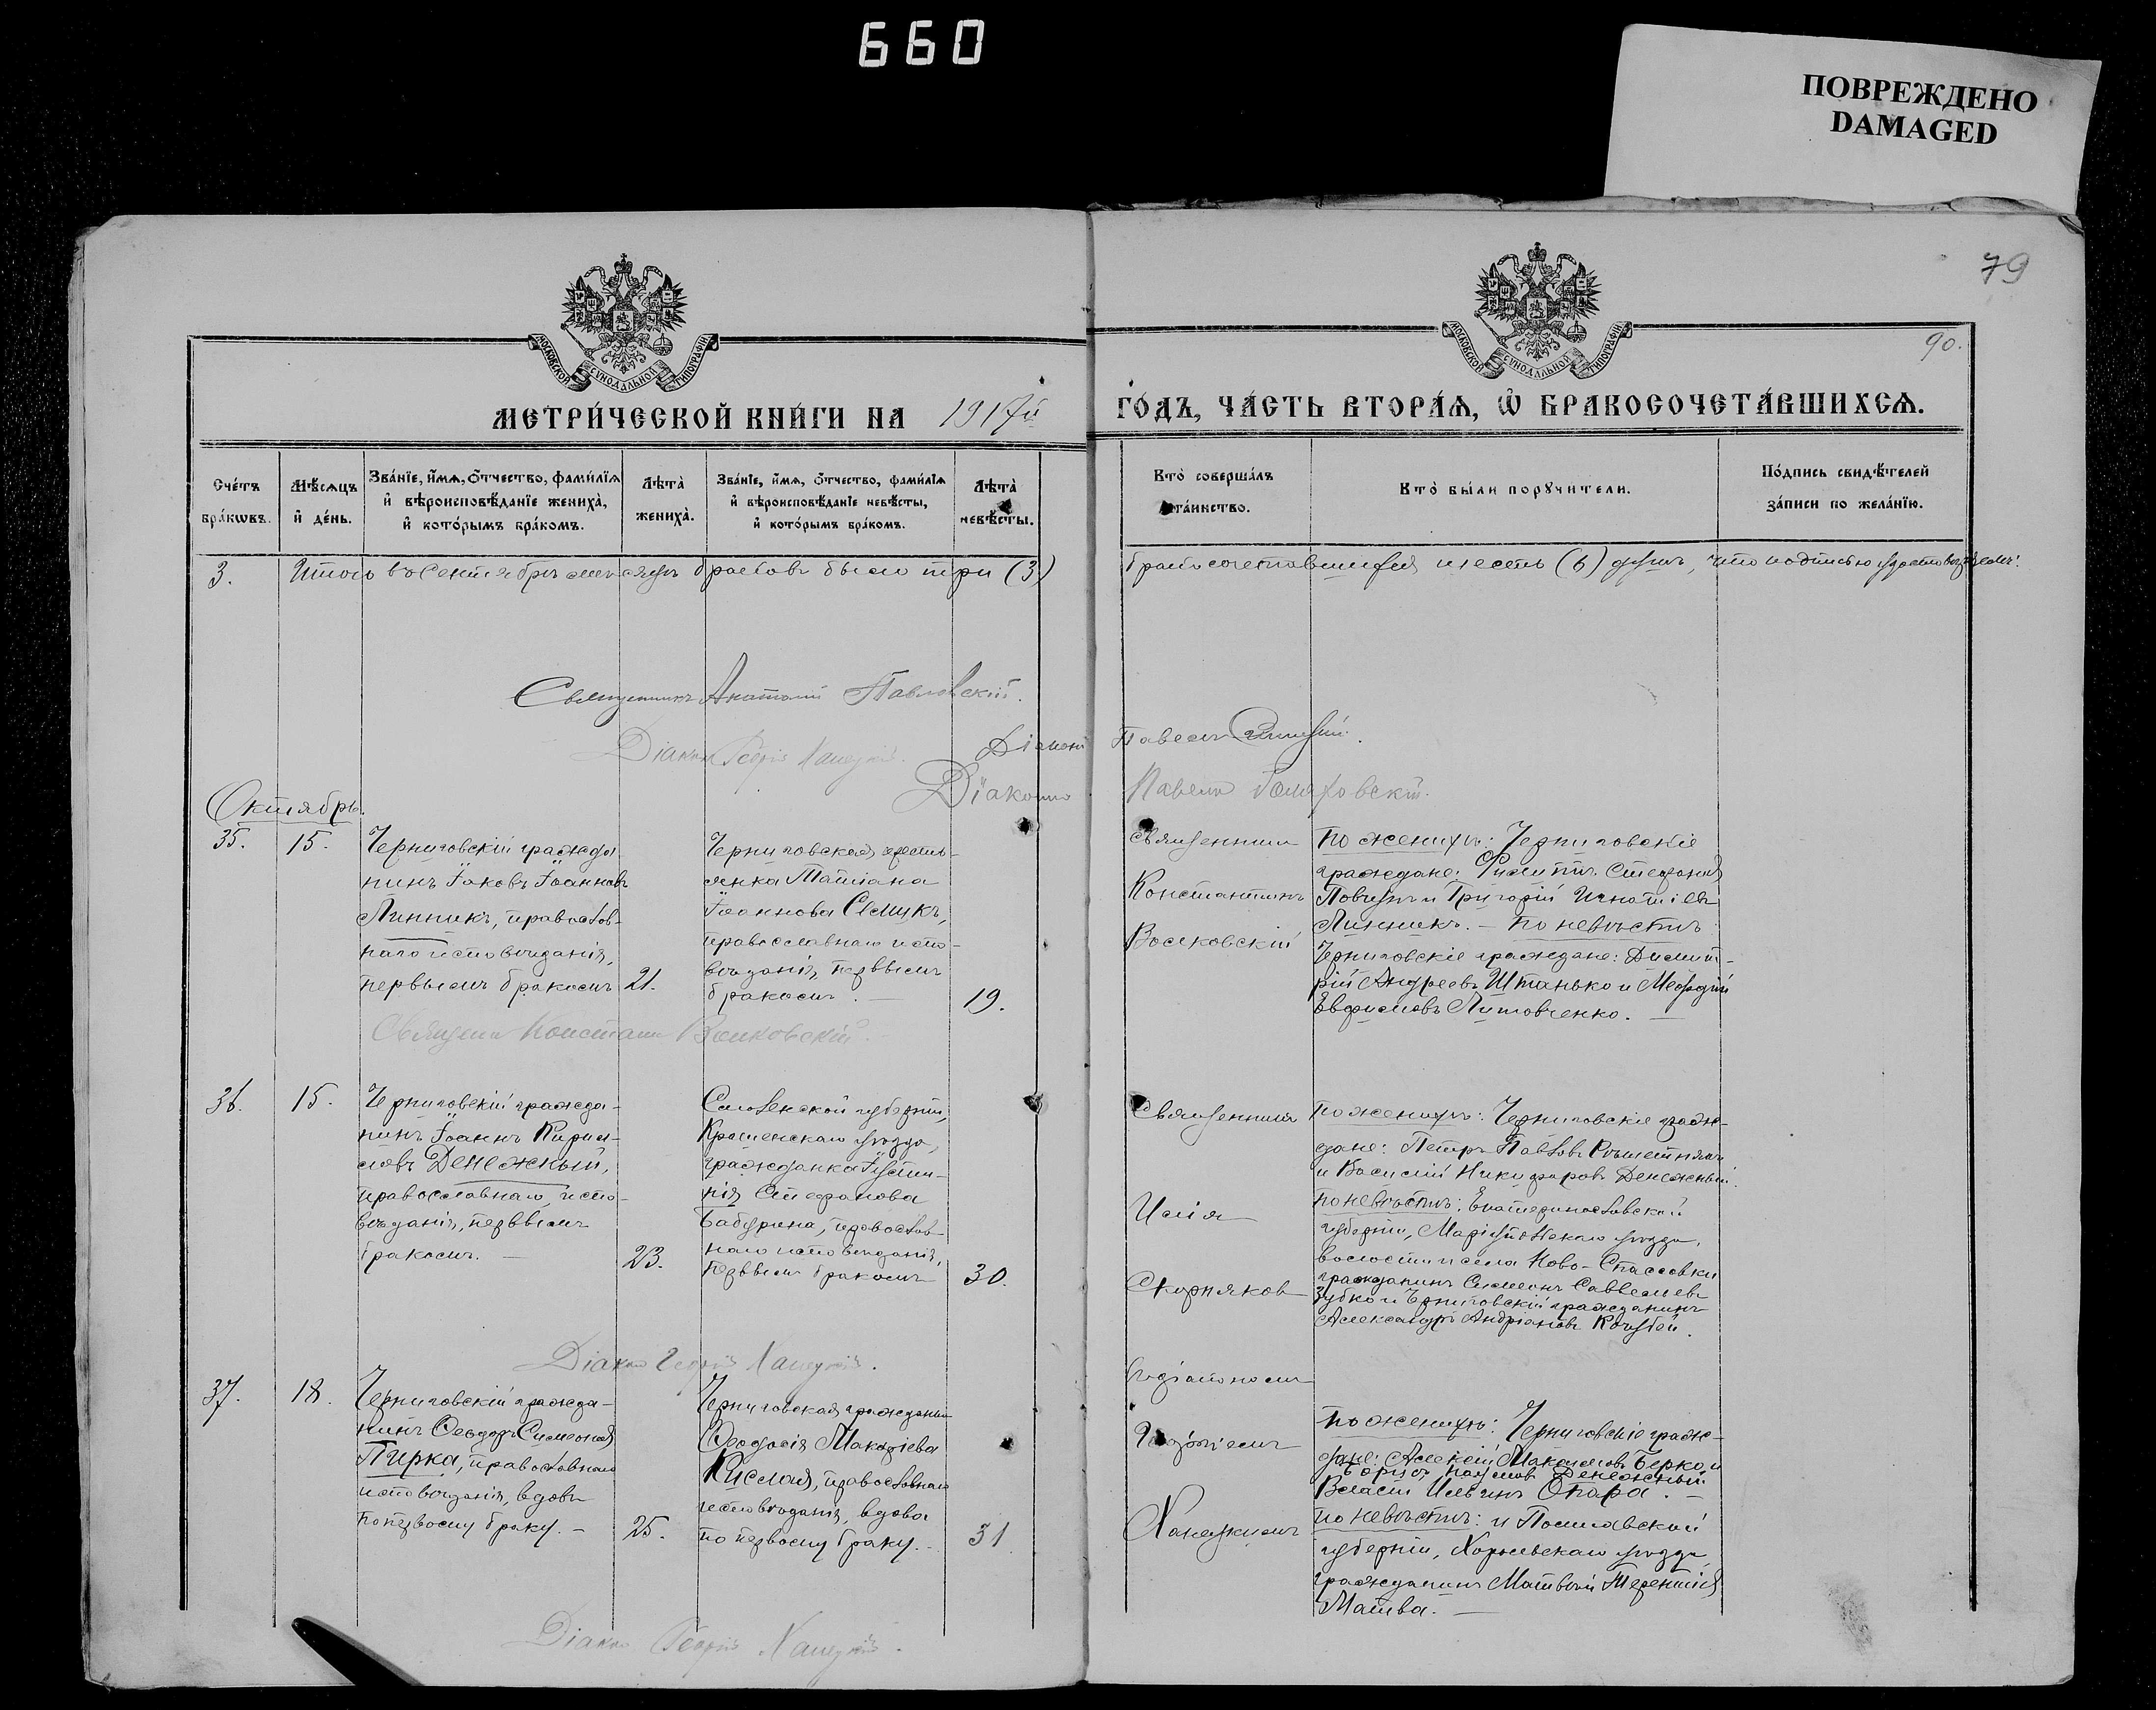 660
ПОВРЕЖДЕНО
DAMAGED
79
90.
МОСКОВСКОЙ СѴНОДАЛЬНОЙ ТИПОГРАФІИ
МОСКОВСКОЙ СѴНОДАЛЬНОЙ ТИПОГРАФІИ
МЕТРИ́ЧЕСКОЙ КНИ́ГИ НА 1917й
ГО́ДЪ, ЧА́СТЬ ВТОРА́Я, Ѡ҆ БРАКОСОЧЕТА́ВШИХСЯ.
Сче́тъ бра́кѡвъ.
Мѣ́сяцъ и҆ де́нь.
Зва́нїе, и҆́мя, ѻ҆́тчество, фами́лїя
и҆ вѣроисповѣ́данїе жениха̀,
и҆ кото́рымъ бра́комъ.
Лѣта̀ жениха̀.
Зва́нїе, и҆́мя, ѻ҆́тчество, фами́лїя
и҆ вѣроисповѣ́данїе невѣ́сты,
и҆ кото́рымъ бра́комъ.
Лѣта̀ невѣ́сты.
Кто̀ соверша́лъ
та́инство.
Кто̀ бы́ли порꙋчи́тели.
По́дпись свидѣ́телей
за́писи по жела́нїю.
3. Итого въ Сентябрѣ мѣсяцѣ браковъ было три (3)
бракосочетавшихся шесть (6) душъ, что подписью удостовѣряемъ:
Священникъ Анатолій Павловскій.
Діаконъ Георгій Ханецкій.
Діаконъ Павелъ
Діаконъ Павелъ
Октябрь.
35.
15.
Черниговскій гражда
нинъ Іаковъ Іоанновъ
Линникъ, православ-
наго исповѣданія,
первымъ бракомъ
21.
Черниговская кресть-
янка Татіана
Іоаннова Семикъ,
православнаго испо-
вѣданія, первымъ
бракомъ. —
19.
Священникъ
Константинъ
Восковскій
По женихѣ: Черниговскіе
граждане: Филиппъ Стефановъ
и Григорій Игнатіевъ
Линникъ. — По невѣстѣ
Черниговскіе граждане: Димит-
рій Андреевъ Штанько и Меѳодій
Евфимовъ Литовченко. —
Священ. Констант. Восковскій
36.
15.
Черниговскій гражда-
нинъ Іоаннъ Кирил-
ловъ Денежный,
православнаго испо-
вѣданія, первымъ
бракомъ. —
23.
Смоленской губерніи,
Красненскаго уѣзда,
гражданка Іустин-
нія Стефанова
Бабурина, православ-
наго исповѣданія,
первымъ бракомъ
30.
Священникъ
Илія
Скорняковъ
По женихѣ: Черниговскіе граж-
дане: Петръ Павловъ Рѣшетнякъ
и Василій Никифоровъ Денежный.
по невѣстѣ: Екатеринославской
губерніи, Маріупольскаго уѣзда,
волости и села Ново-Спассовки
гражданинъ Симеонъ Савельевъ
Зубко и Черниговскій гражданинъ
Александръ Андріановъ Кочубей.
Діаконъ Георгій Ханецкій.
37.
18.
Черниговскій гражда-
нинъ Ѳеодоръ Симеоновъ
Пирка, православнаго
исповѣданія, вдовъ
по первому браку. —
25.
Черниговская гражданка
Ѳеодосія Макаріева
Кислая, православнаго
исповѣданія, вдова
по первому браку. —
31
Съ діакономъ
Георгіемъ
Ханецкимъ
по женихѣ: Черниговскіе граж-
дане: Алексій Максимовъ Берко и
Борисъ Наумовъ Денежный
Власій Ильинъ Опара. —
по невѣстѣ: и Полтавской
губерніи, Хорольскаго уѣзда,
гражданинъ Матвѣй Терентіевъ
Матва. —
Діаконъ Георгій Ханецкій.